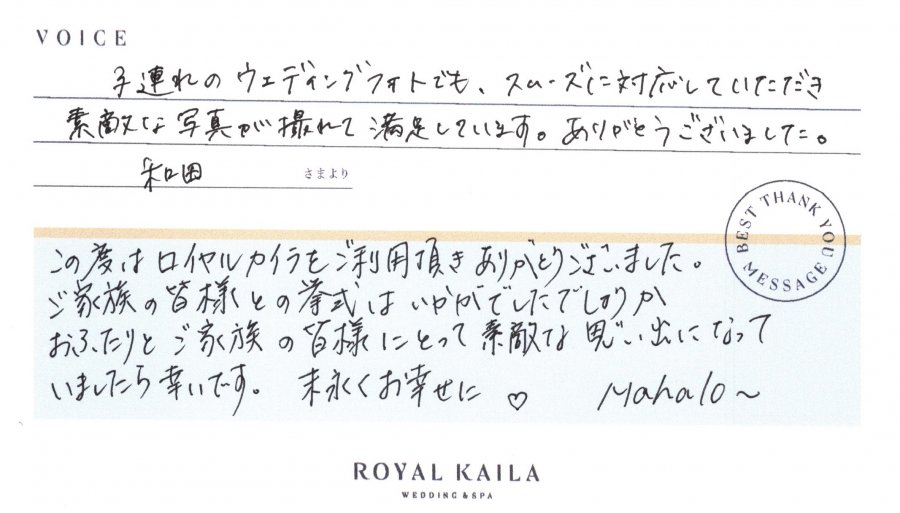 VOICE
子連れのウェディングフォトでも、スムーズに対応していただき
素敵な写真が撮れて満足しています。ありがとうございました。
和田 さまより
BEST THANK YOU MESSAGE
この度はロイヤルカイラをご利用頂きありがとうございました。
ご家族の皆様との挙式はいかがでしたでしょうか
おふたりとご家族の皆様にとって素敵な思い出になって
いましたら幸いです。 末永くお幸せに ♡ Mahalo～
ROYAL KAILA
WEDDING & SPA